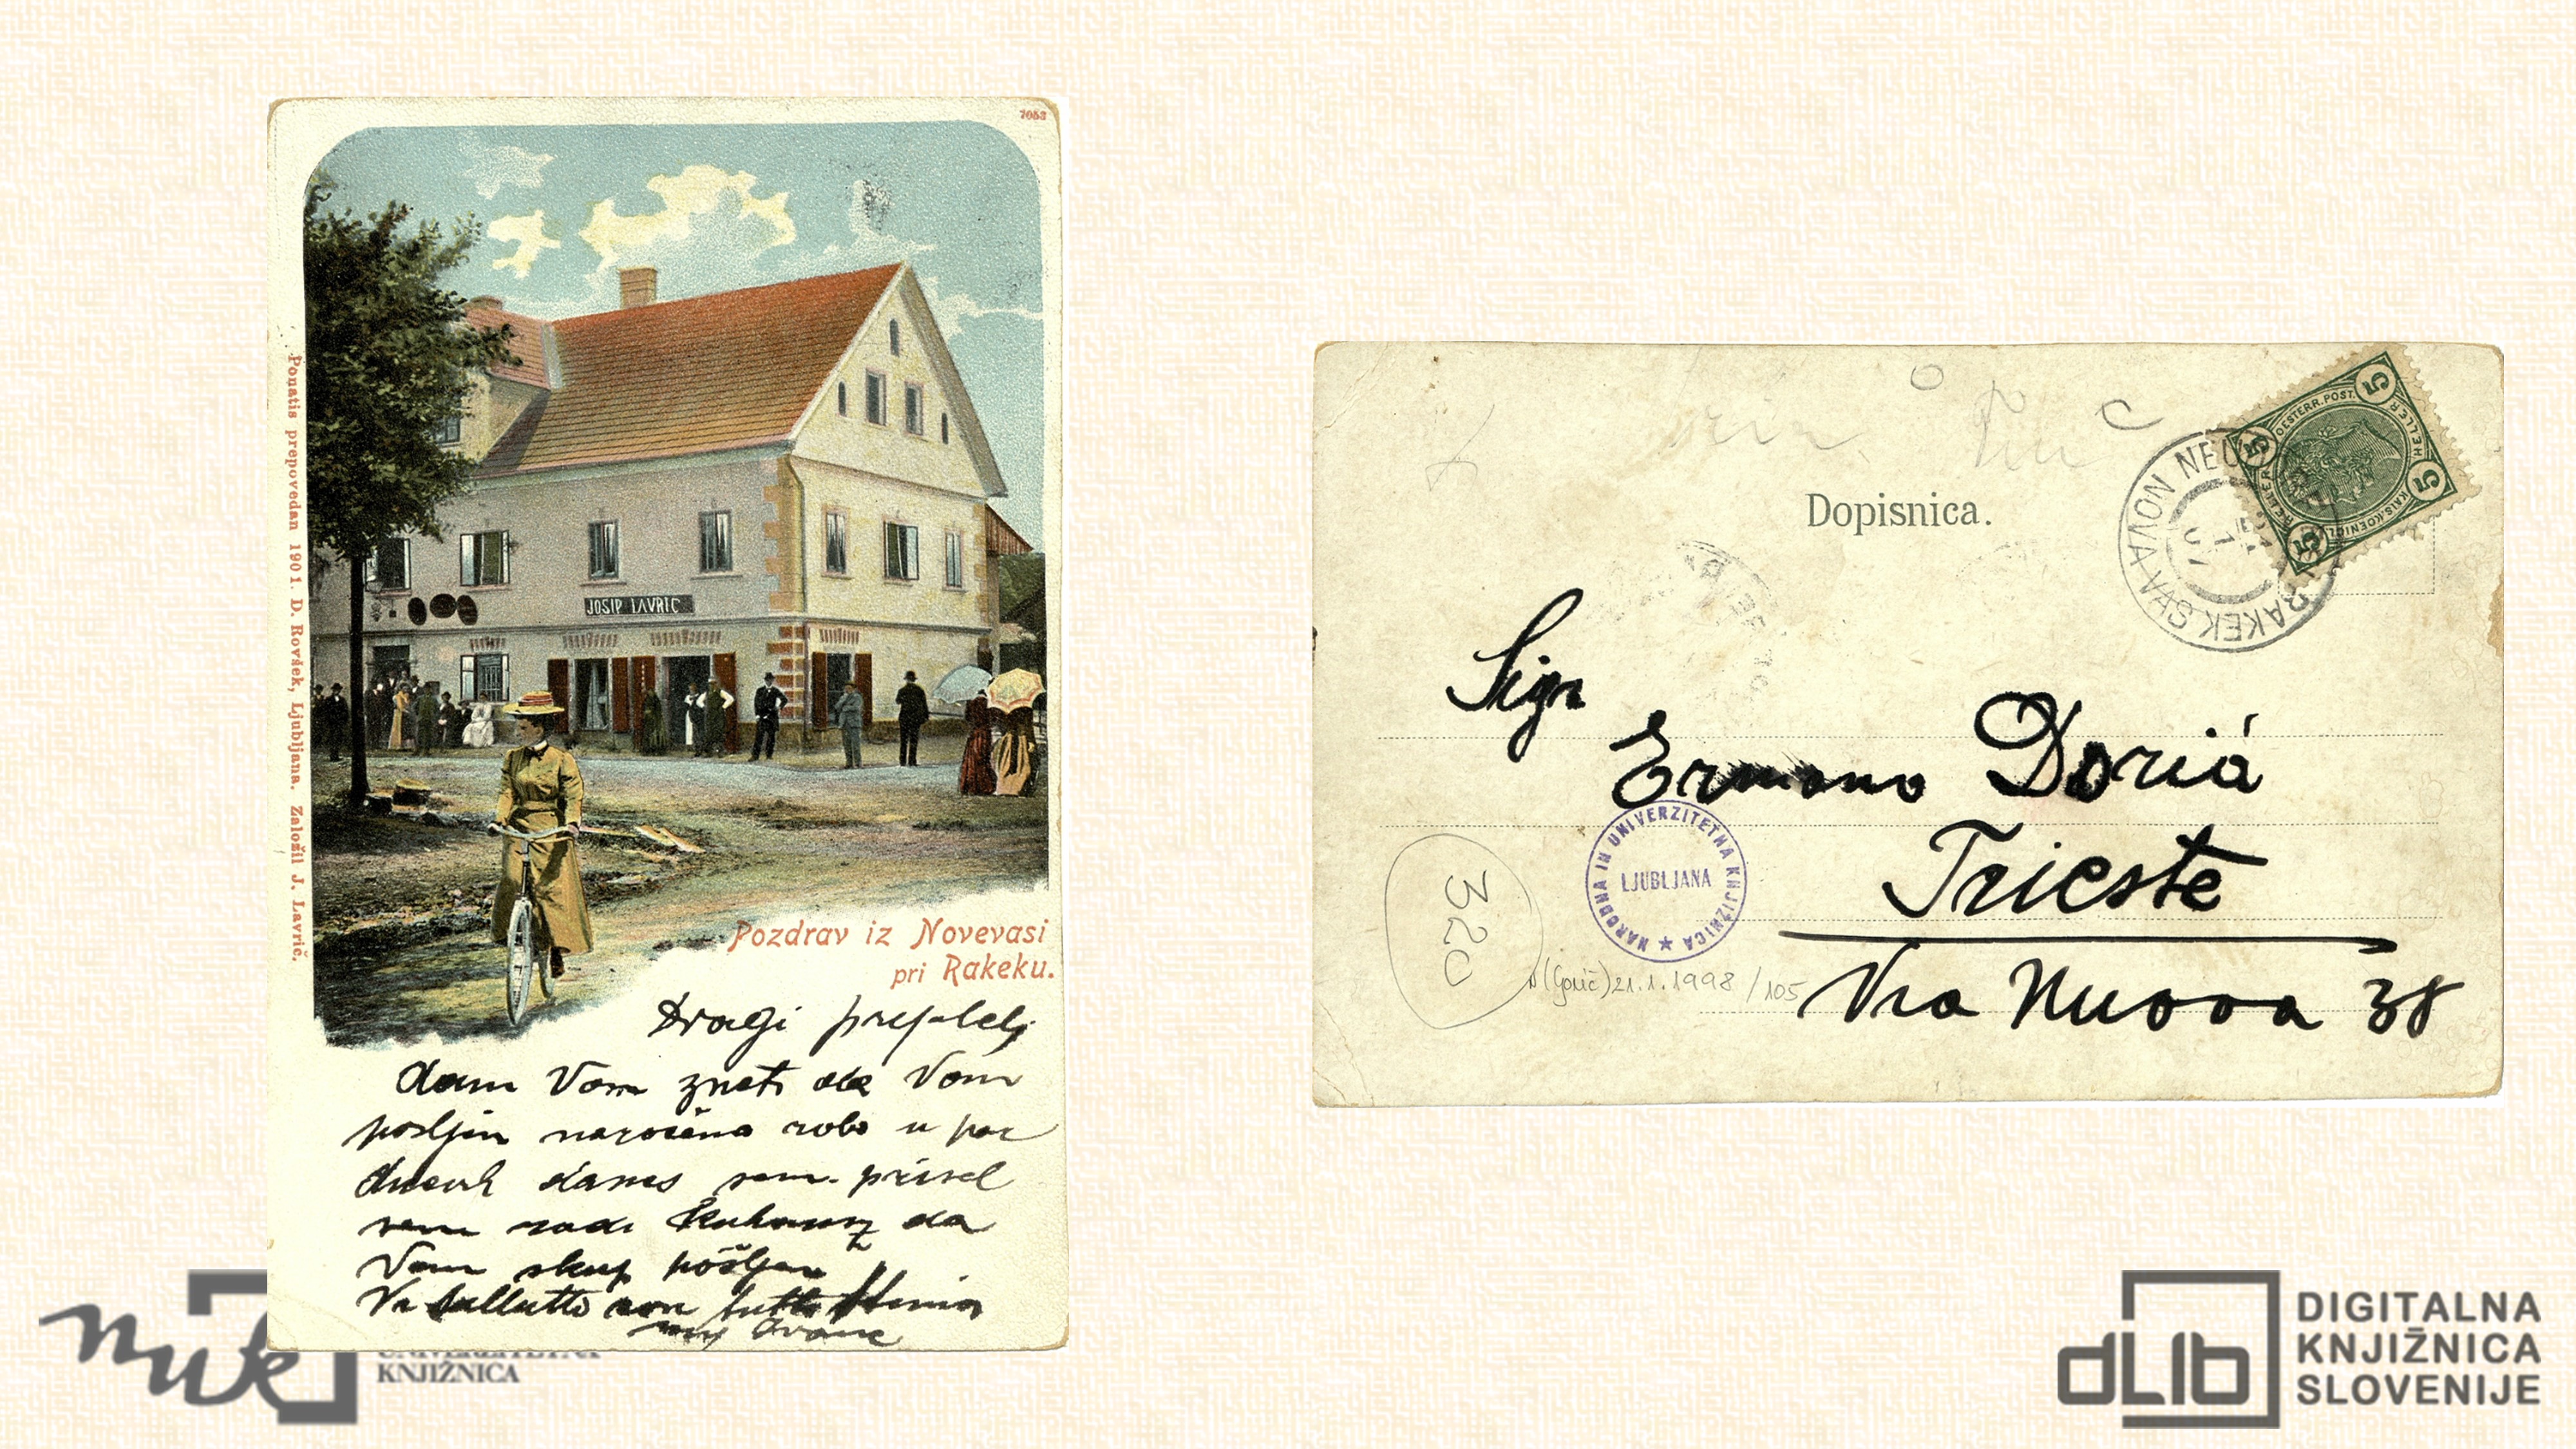 7053
JOSIP LAVRIČ
Ponatis prepovedan 1901. D. Rovšek, Ljubljana. Založil J. Lavrič.
Pozdrav iz Novevasi
pri Rakeku.
Dragi
dam Vam znati da Vam
posljem robo u par
danes sem prisel
sem radi da
Vam skup pošljem
tutto
Dopisnica.
OESTERR. POST.
5 HELLER 5
KAIS. KOENIGL.
NOVA VAS RAKEK
Sign
Ermano Doriá
Trieste
Via Nuova 38
NARODNA IN UNIVERZITETNA KNJIŽNICA ★
LJUBLJANA
320
21.1.1998/105
nuk
UNIVERZITETNA
KNJIŽNICA
dLib
DIGITALNA
KNJIŽNICA
SLOVENIJE